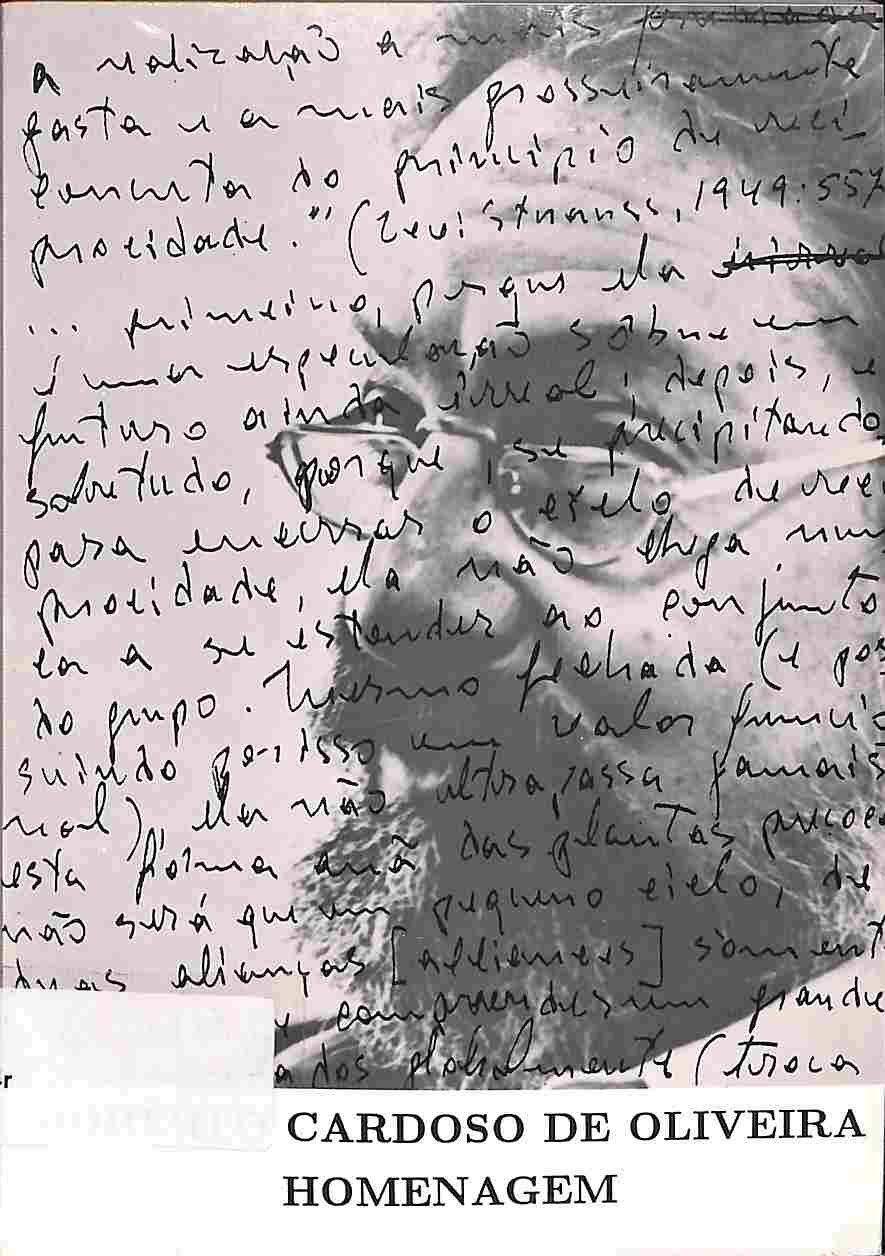 a realização a mais
gasta e a mais grosseiramente
concreta do princípio de reci_
procidade."' (Levi Strauss, 1949:557
... primeiro, porque ela
é uma especulação sôbre um
futuro ainda irreal; depois, e
sobretudo, porque, se precipitando
para encerrar o ciclo de reci
procidade, ela não chega nun
ca a se estender ao conjunto
do grupo. Mesmo fechada (e pos
suindo por isso um valor funcio
nal), ela não ultrapassa jamais
esta forma anã das plantas precoc
não será que um pequeno ciclo, de
duas alianças [alliances] soment
compreender um grande
ados globalmente (troca
r
CARDOSO DE OLIVEIRA
HOMENAGEM